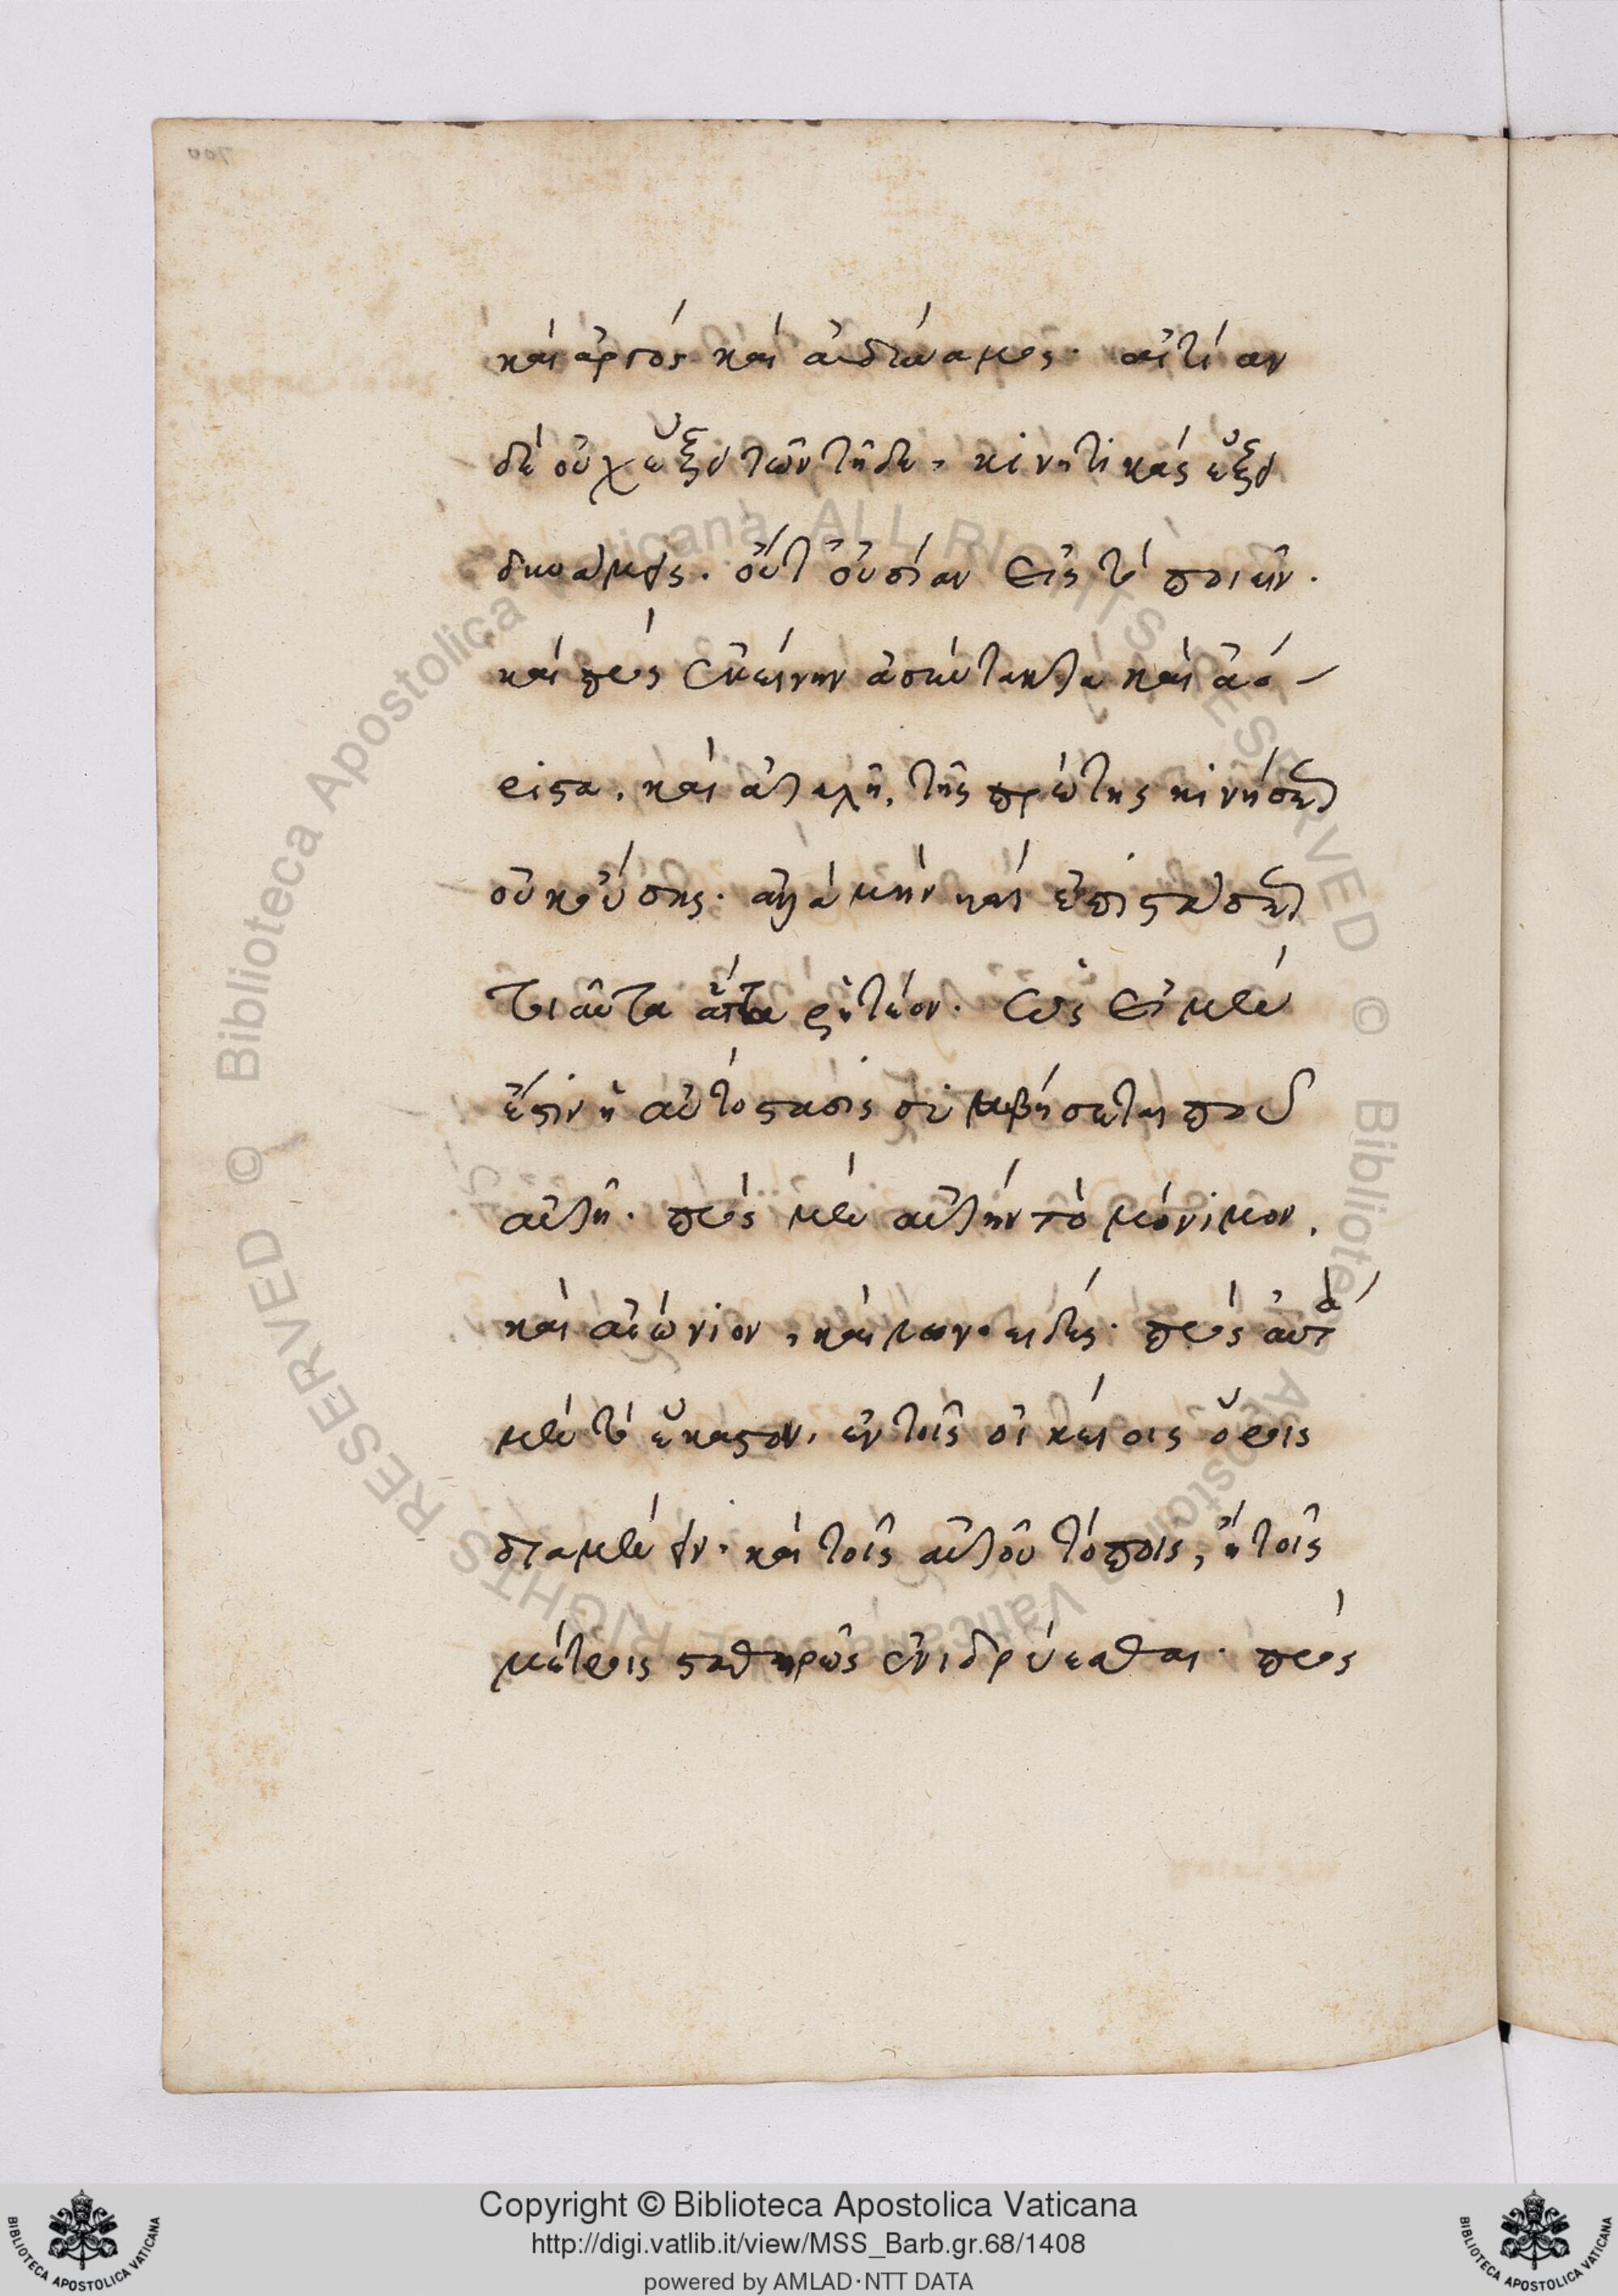 καὶ ἀργὸς καὶ ἀδύναμος· αἰτίαν
δὲ οὐχ ἕξει τῶν τῇδε, κινητικὰς ἕξει
δυνάμεις. οὔτ' οὐσίαν εἰς τὸ ποιεῖν.
καὶ πρὸς ἐκείνην ἀσύντακτα καὶ ἀό-
ριστα, καὶ ἀτελῆ, τῆς πρώτης κινήσεως
οὐκ οὔσης. ἀλλὰ μὴν καὶ ἐπὶ στάσεως
τοιαῦτα ἄττα ῥητέον. ὡς εἰ μὲν
ἔστιν ἡ αὐτόστασις συμβήσεται που
αὐτῇ. πρὸς μὲν αὐτὴν τὸ μόνιμον,
καὶ αἰώνιον, καὶ μονοειδές· πρὸς αὐτὰ
μὲν τὸ ἕκαστον, ἐν τοῖς οἰκείοις ὅροις
διαμένειν· καὶ τοῖς αὐτοῦ τόποις, ἢ τοῖς
μέτροις σταθηρῶς ἐνιδρύεσθαι· πρὸς
Copyright © Biblioteca Apostolica Vaticana
http://digi.vatlib.it/view/MSS_Barb.gr.68/1408
powered by AMLAD·NTT DATA
BIBLIOTECA APOSTOLICA VATICANA
BIBLIOTECA APOSTOLICA VATICANA
© Biblioteca Apostolica Vaticana ALL RIGHTS RESERVED
© Biblioteca Apostolica Vaticana ALL RIGHTS RESERVED